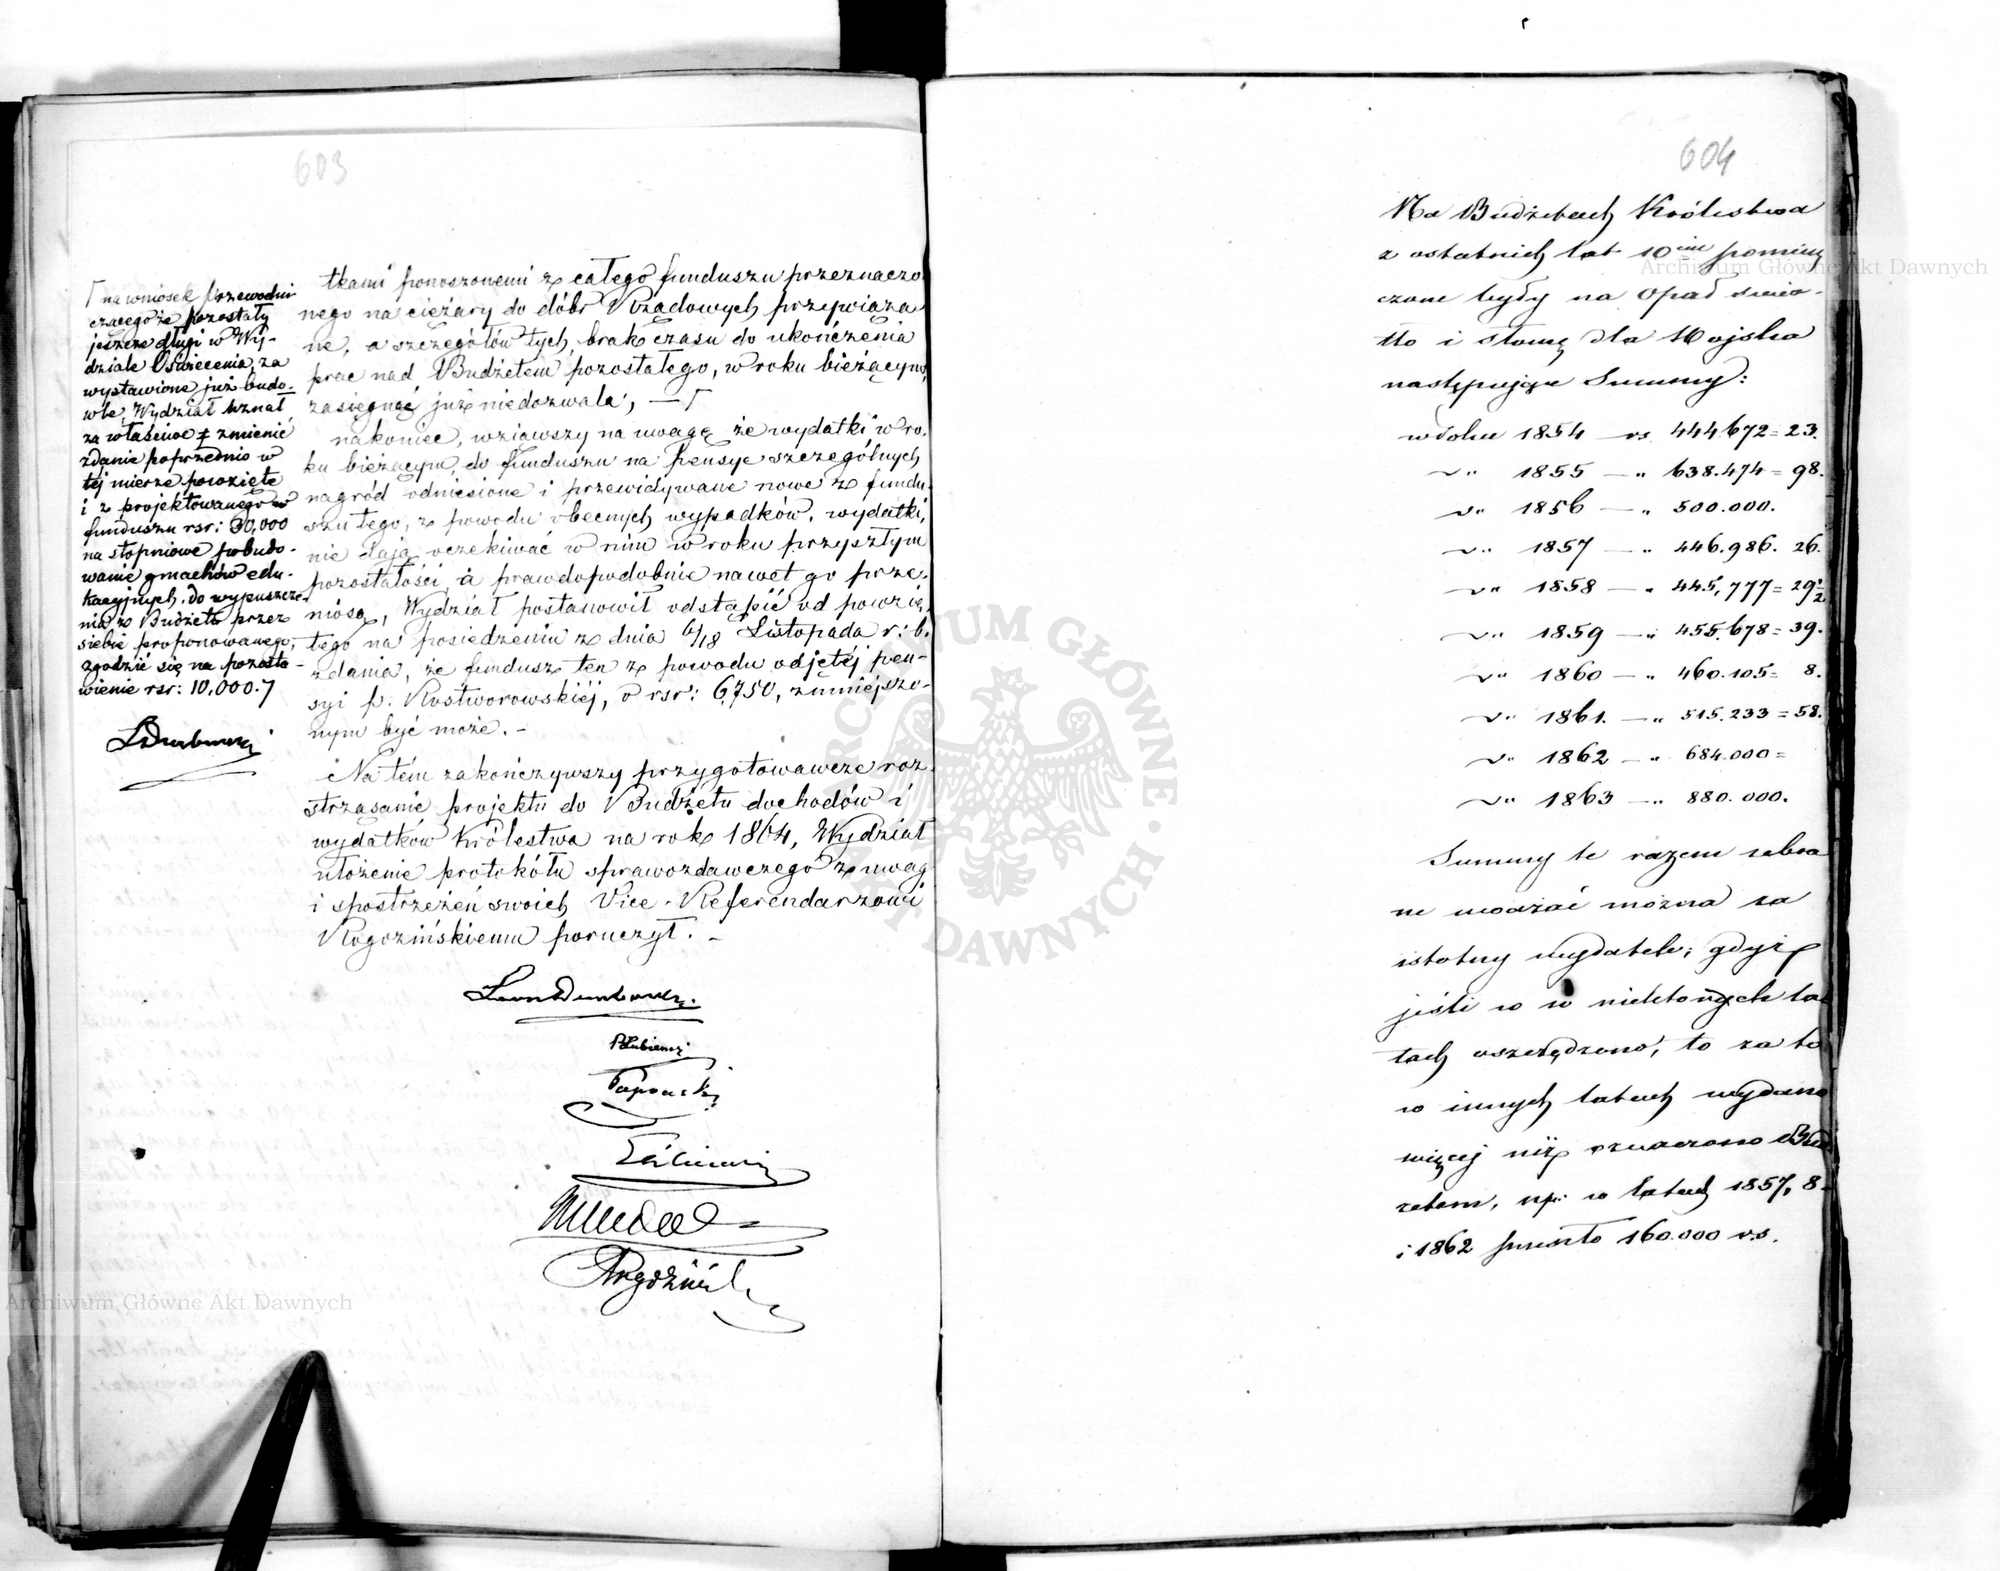 603
⌈ na wniosek Przewodni
czącego że pozostały
jeszcze długi w Wy-
dziale Oświecenia, za
wystawione już budo-
wle, Wydział uznał
za właściwe zmienić
zdanie poprzednio w
tej mierze powzięte
i z projektowanego
funduszu rsr: 30,000
na stopniowe pobudo-
wanie gmachów edu-
kacyjnych, do wypuszcze-
nia z Budżetu przez
siebie proponowanego,
zgodzić się na pozosta-
wienie rsr: 10,000.⌉
LDembowski
tkami ponoszonemi z całego funduszu przeznaczo
nego na ciężary do dóbr Rządowych przywiąza
ne, a szczegółów tych, brak czasu do ukończenia
prac nad Budżetem pozostałego, w roku bieżącym,
zasięgnąć już niedozwala, — ⌈
nakoniec, wziąwszy na uwagę że wydatki w ro-
ku bieżącym, do funduszu na pensye szczególnych
nagród odniesione i przewidywane nowe z fundu-
szu tego, z powodu obecnych wypadków, wydatki,
nie dają oczekiwać w nim w roku przyszłym
pozostałości, a prawdopodobnie nawet go prze-
niosą, Wydział postanowił odstąpić od powzię-
tego na posiedzeniu z dnia 6/18 Listopada r: b.
zdania, że fundusz ten z powodu odjętéj pen-
syi p. Rostworowskiéj, o rsr: 6,750, zmniejszo-
nym być może. –
Na tém zakończywszy przygotowawcze roz-
strząsanie projektu do Budżetu dochodów i
wydatków Królestwa na rok 1864, Wydział
ułożenie protokółu sprawozdawczego z uwag
i spostrzeżeń swoich Vice-Referendarzowi
Rogozińskiemu poruczył. –
Leon Dembowski
PŁubieński
Rogoziński
604
Na Budżetach Królestwa
z ostatnich lat 10ciu pomiesz
czone były na Opał świa-
tło i słomę dla Wojska
następujące Summy:
w Roku 1854 — rs. 444.672 = 23.
〃 1855 — 〃 638.474 = 98.
〃 1856 — 〃 500.000.
〃 1857 — 〃 446.986. 26.
〃 1858 — 〃 445,777 = 29½
〃 1859 — 〃 455.678 = 39.
〃 1860 — 〃 460.105 = 8.
〃 1861. — 〃 515.233 = 58.
〃 1862 — 〃 684.000 =
〃 1863 — 〃 880.000.
Summy te razem zebra
ne uważać można za
istotny wydatek; gdyż
jeśli w w niektórych la
tach oszczędzono, to za to
w innych latach wydano
więcej niż oznaczono Bud
żetem, np: w latach 1857, 8
i 1862 przeszło 160.000 rs.
Archiwum Główne Akt Dawnych
ARCHIWUM GŁÓWNE AKT DAWNYCH
Archiwum Główne Akt Dawnych